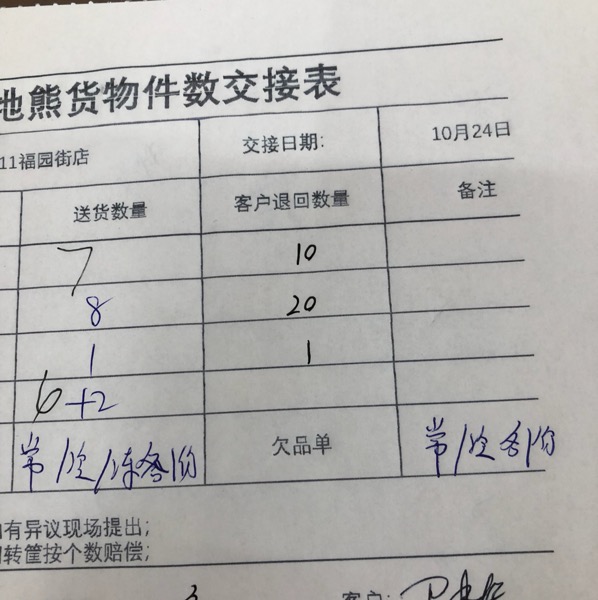 地熊货物件数交接表
11福园街店 交接日期: 10月24日
送货数量 客户退回数量 备注
7 10
8 20
1 1
6+2
常/冷/冻各1份 欠品单 常/冷各1份
有异议现场提出;
转筐按个数赔偿;
客户: